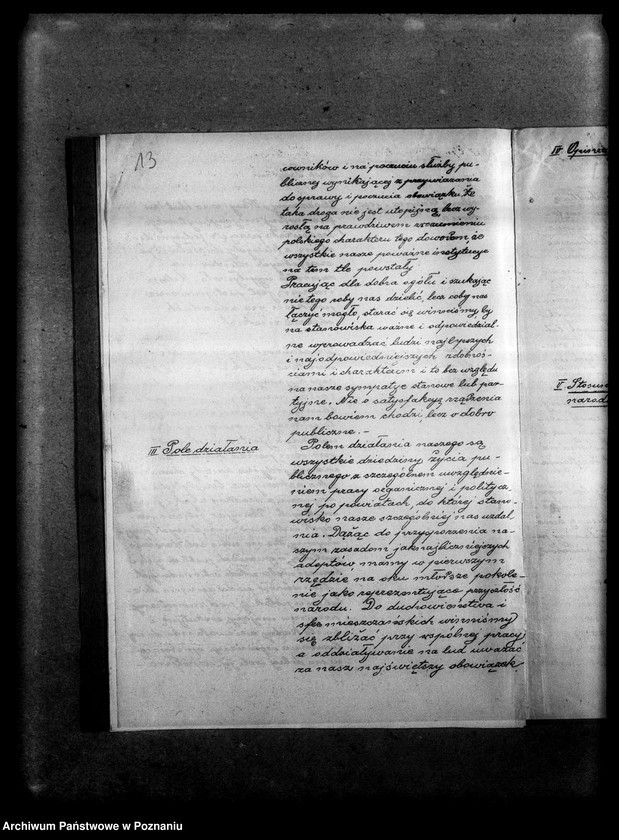 13
cowników i na poczuciu służby pu-
blicznej wynikającej z przywiązania
do sprawy i poczucia obowiązku. Że
taka droga nie jest utopijną, lecz wy-
rosłą na prawdziwem zrozumieniu
polskiego charakteru tego dowodem, że
wszystkie nasze poważne instytucye
na tem tle powstały
Pracując dla dobra ogółu i szukając
nie tego coby nas dzielić, lecz coby nas
łączyć mogło, starać się winniśmy, by
na stanowiska ważne i odpowiedzial-
ne wprowadzać ludzi najlepszych
i najodpowiedniejszych zdolnoś-
ciami i charakterem i to bez względu
na nasze sympatye stanowe lub par-
tyjne. Nie o satysfakcyę rządzenia
nam bowiem chodzi, lecz o dobro
publiczne.-
III Pole działania
Polem działania naszego są
wszystkie dziedziny życia pu-
blicznego z szczególnem uwzględnie-
niem pracy organicznej i politycz-
nej po powiatach, do której stano-
wisko nasze szczególniej nas uzdol-
nia. Dążąc do przysporzenia na-
szym zasadom jaknajliczniejszych
adeptów mamy w pierwszym
rzędzie na oku młodsze pokole-
nie jako reprezentujące przyszłość
narodu. Do duchowieństwa i
sfer mieszczańskich winniśmy
się zbliżać przy wspólnej pracy
a oddziaływanie na lud uważać
za nasz najświętszy obowiązek.
IV Opinia
V Stosun
narod
Archiwum Państwowe w Poznaniu